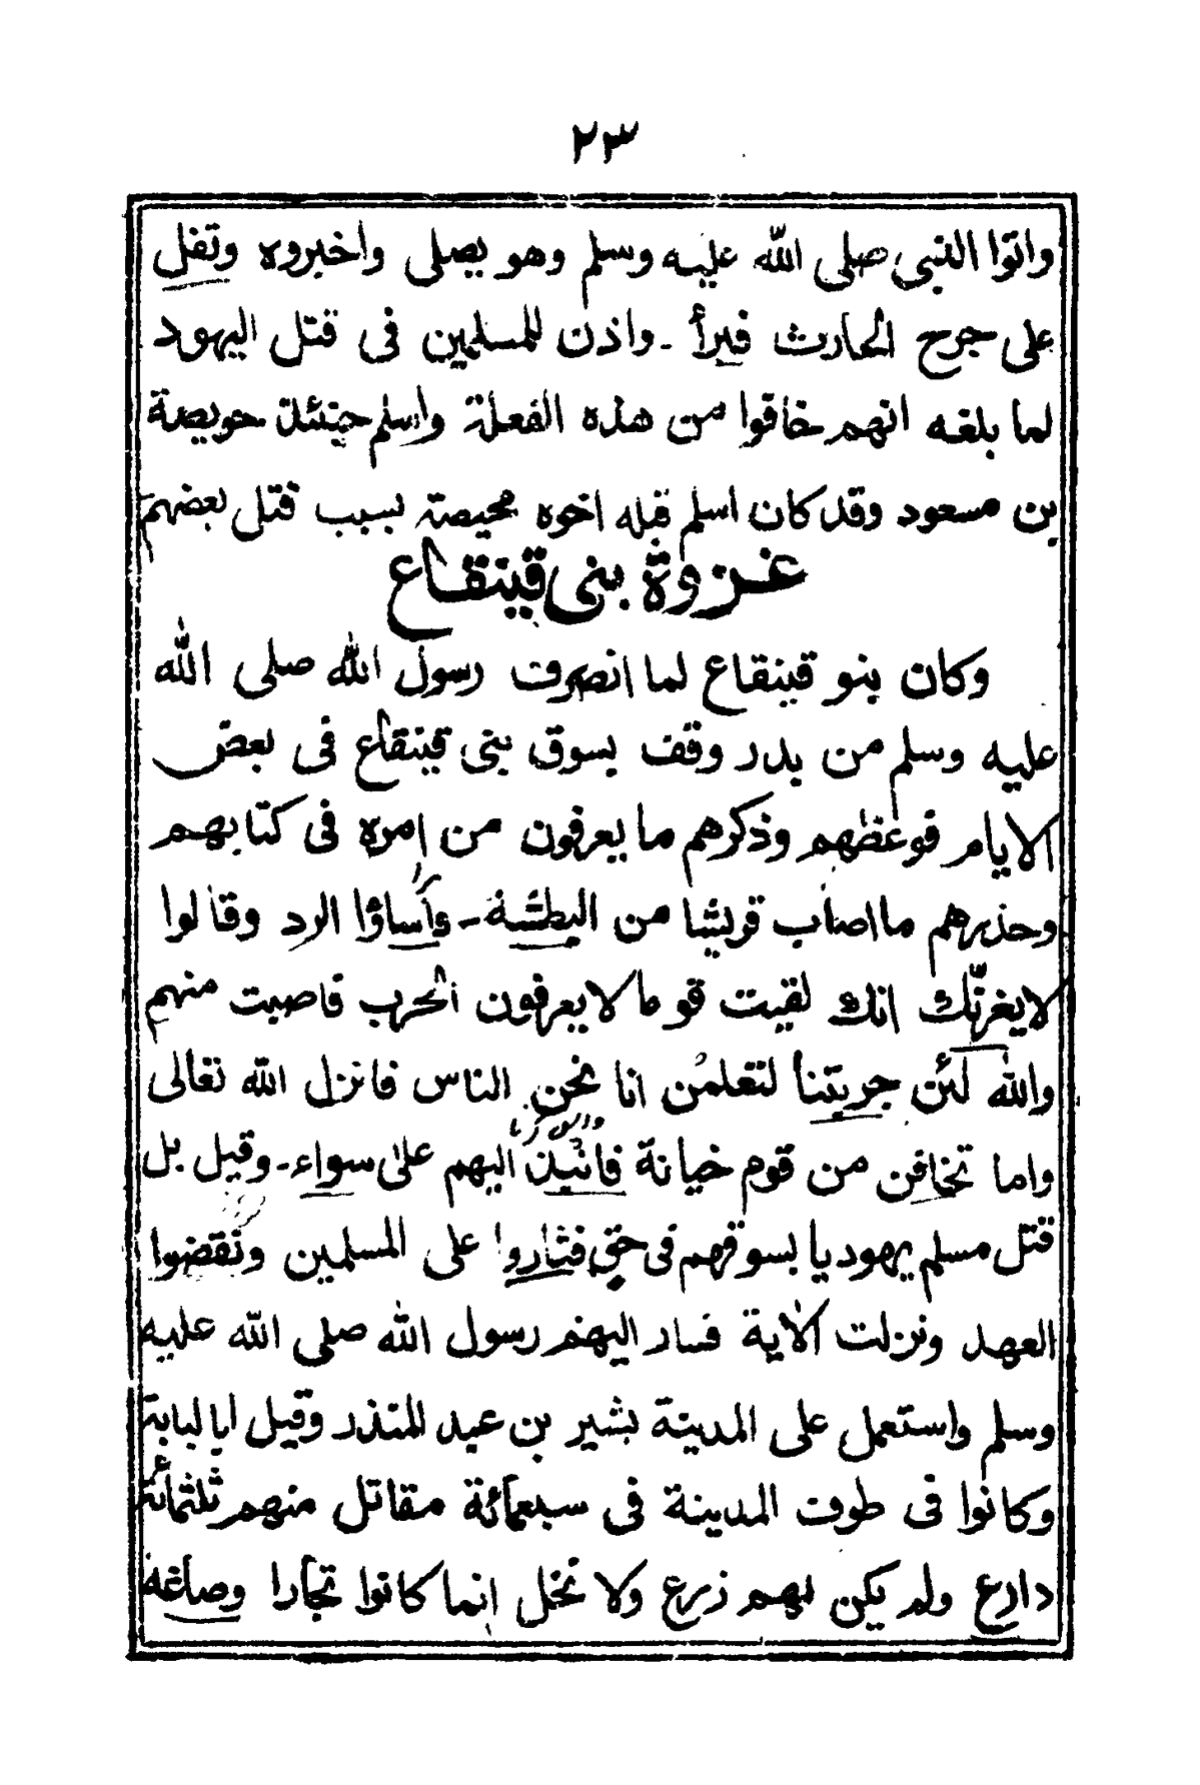 ٢٣
واتوا النبی صلی الله علیه وسلم وهو یصلی واخبروه وتفل
علی جرح الحارث فبرأ ۔ واذن للمسلمین فی قتل الیهود
لما بلغه انهم خافوا من هذه الفعلة واسلم حینئذ حویصة
بن مسعود وقد کان اسلم قبله اخوه محیصة بسبب قتل بعضهم
غزوة بنی قینقاع
وکان بنو قینقاع لما انصرف رسول الله صلی الله
علیه وسلم من بدر وقف بسوق بنی قینقاع فی بعض
الایام فوعظهم وذکرهم ما یعرفون من امره فی کتابهم
وحذرهم ما اصاب قریشا من البطشة ۔ وأساؤا الرد وقالوا
لا یغرنّک انک لقیت قوما لا یعرفون الحرب فاصبت منهم
والله لئن جربتنا لتعلمن انا نحن الناس فانزل الله تعالی
واما تخافن من قوم خیانة فانبذ الیهم علی سواء ۔ وقیل بل
قتل مسلم یهودیا بسوقهم فی حق فثاروا علی المسلمین ونقضوا
العهد ونزلت الاٰیة فسار الیهم رسول الله صلی الله علیه
وسلم واستعمل علی المدینة بشیر بن عبد المنذر وقیل ابا لبابة
وکانوا فی طرف المدینة فی سبعمائة مقاتل منهم ثلثمائة
دارع ولم یکن لهم زرع ولا نخل انما کانوا تجارا وصاغة